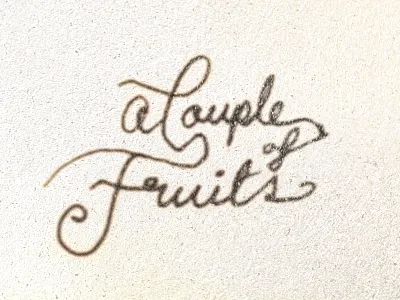 a Couple
of
Fruits